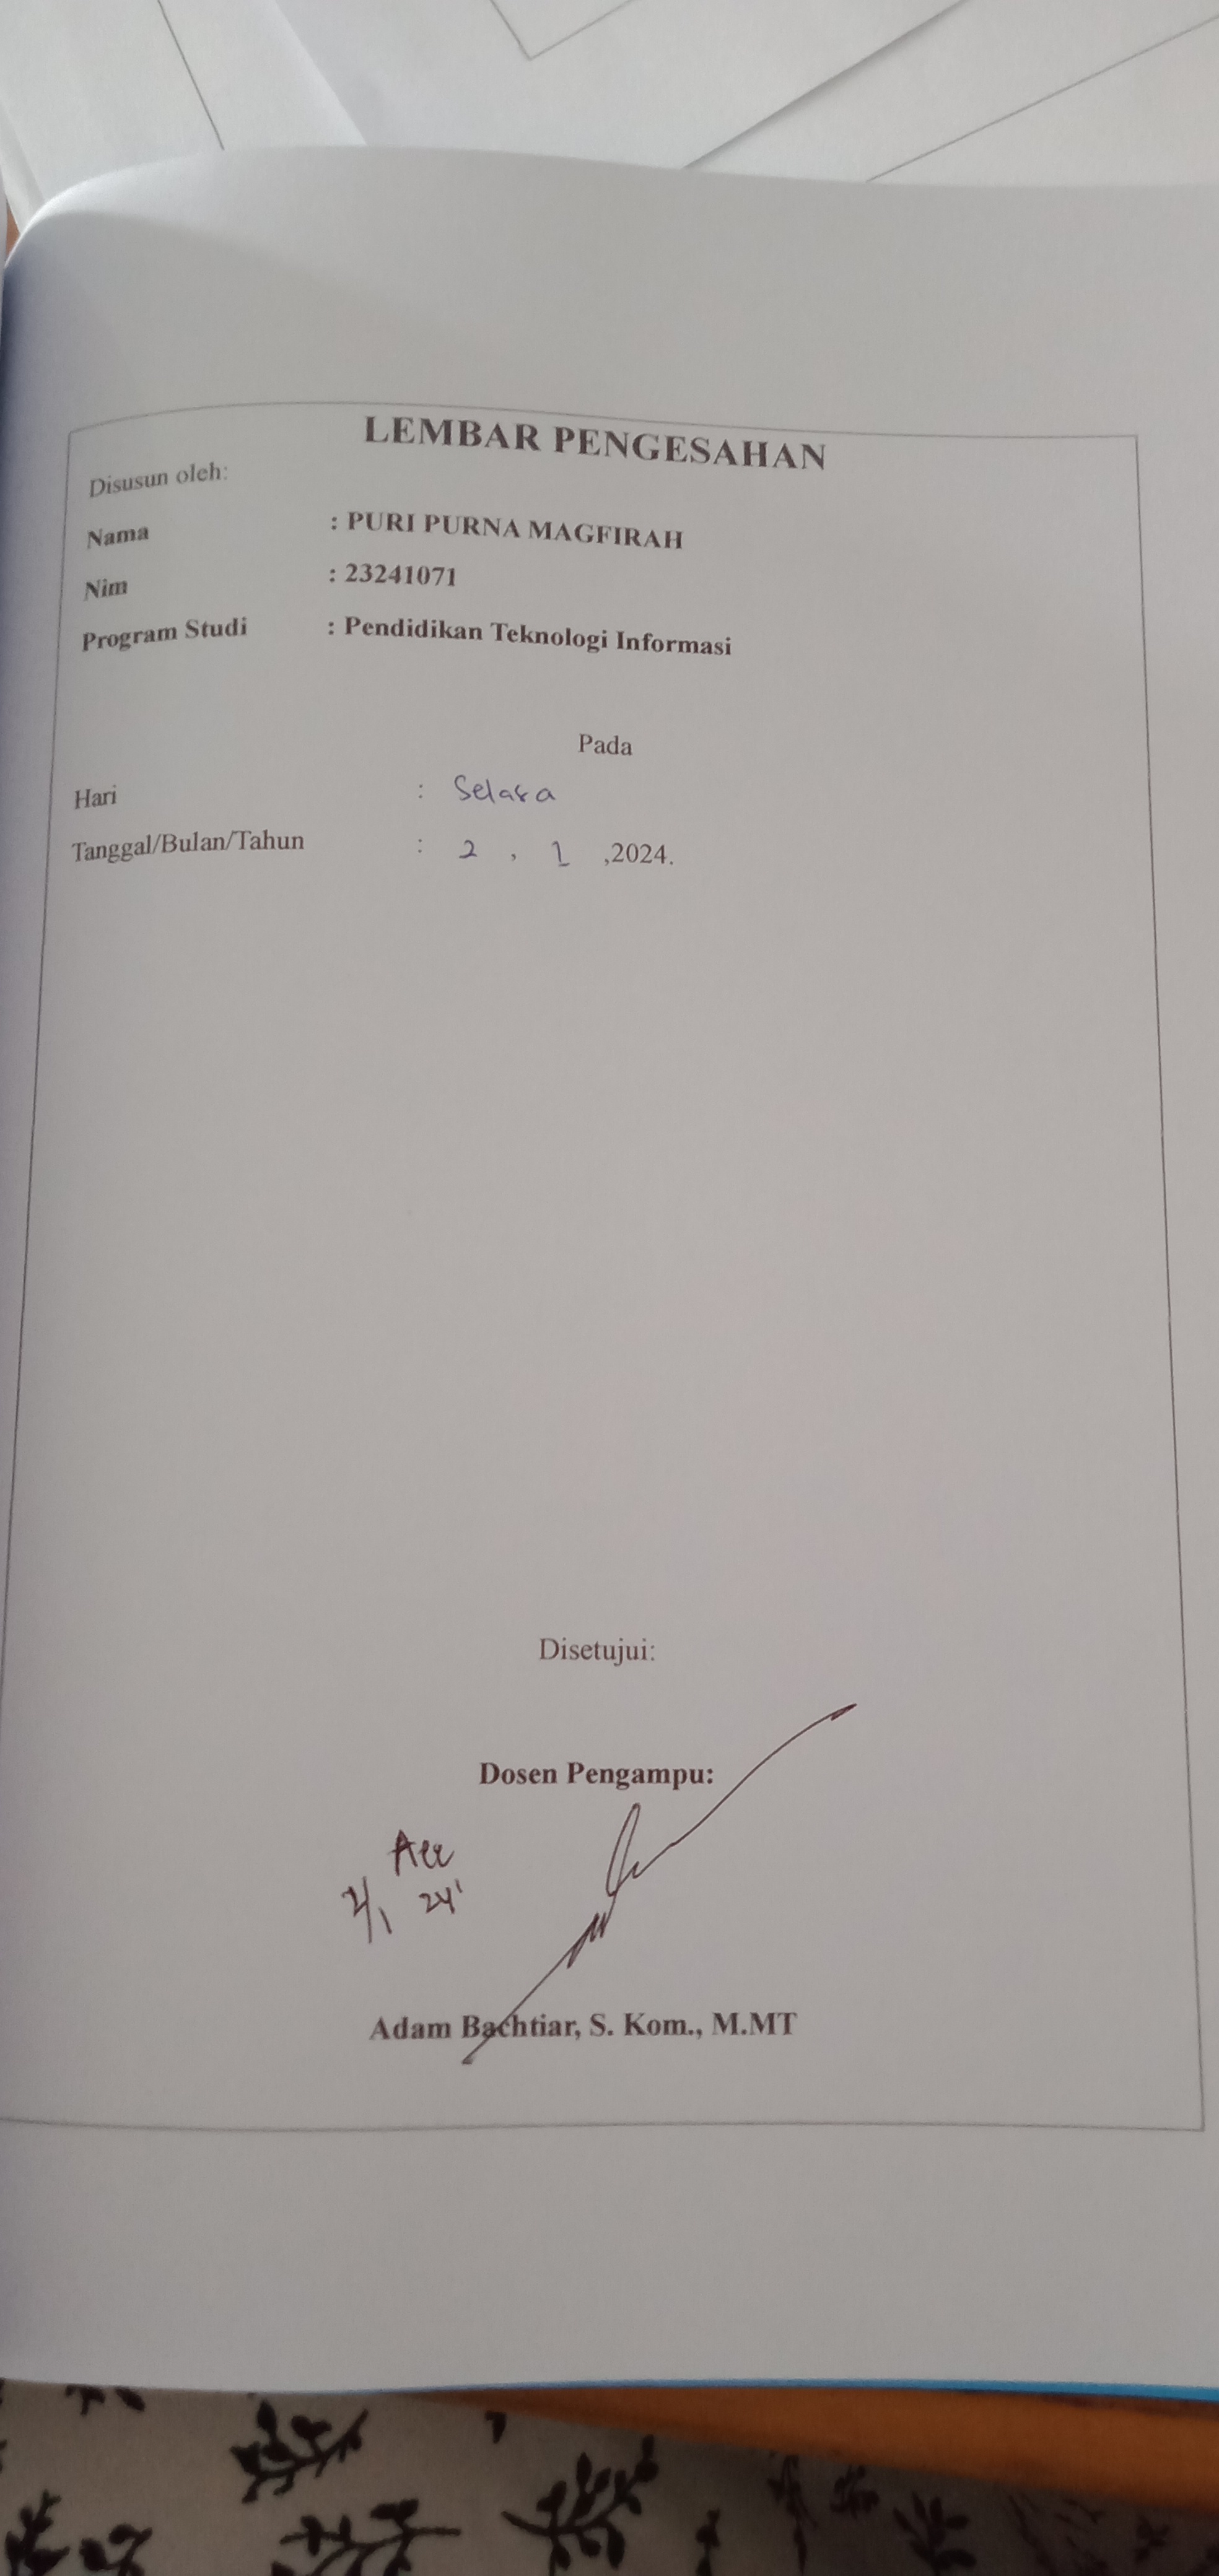 LEMBAR PENGESAHAN
Disusun oleh:
Nama : PURI PURNA MAGFIRAH
Nim : 23241071
Program Studi : Pendidikan Teknologi Informasi
Pada
Hari : Selasa
Tanggal/Bulan/Tahun : 2 , 1 ,2024.
Disetujui:
Dosen Pengampu:
Acc
2/1 24'
Adam Bachtiar, S. Kom., M.MT